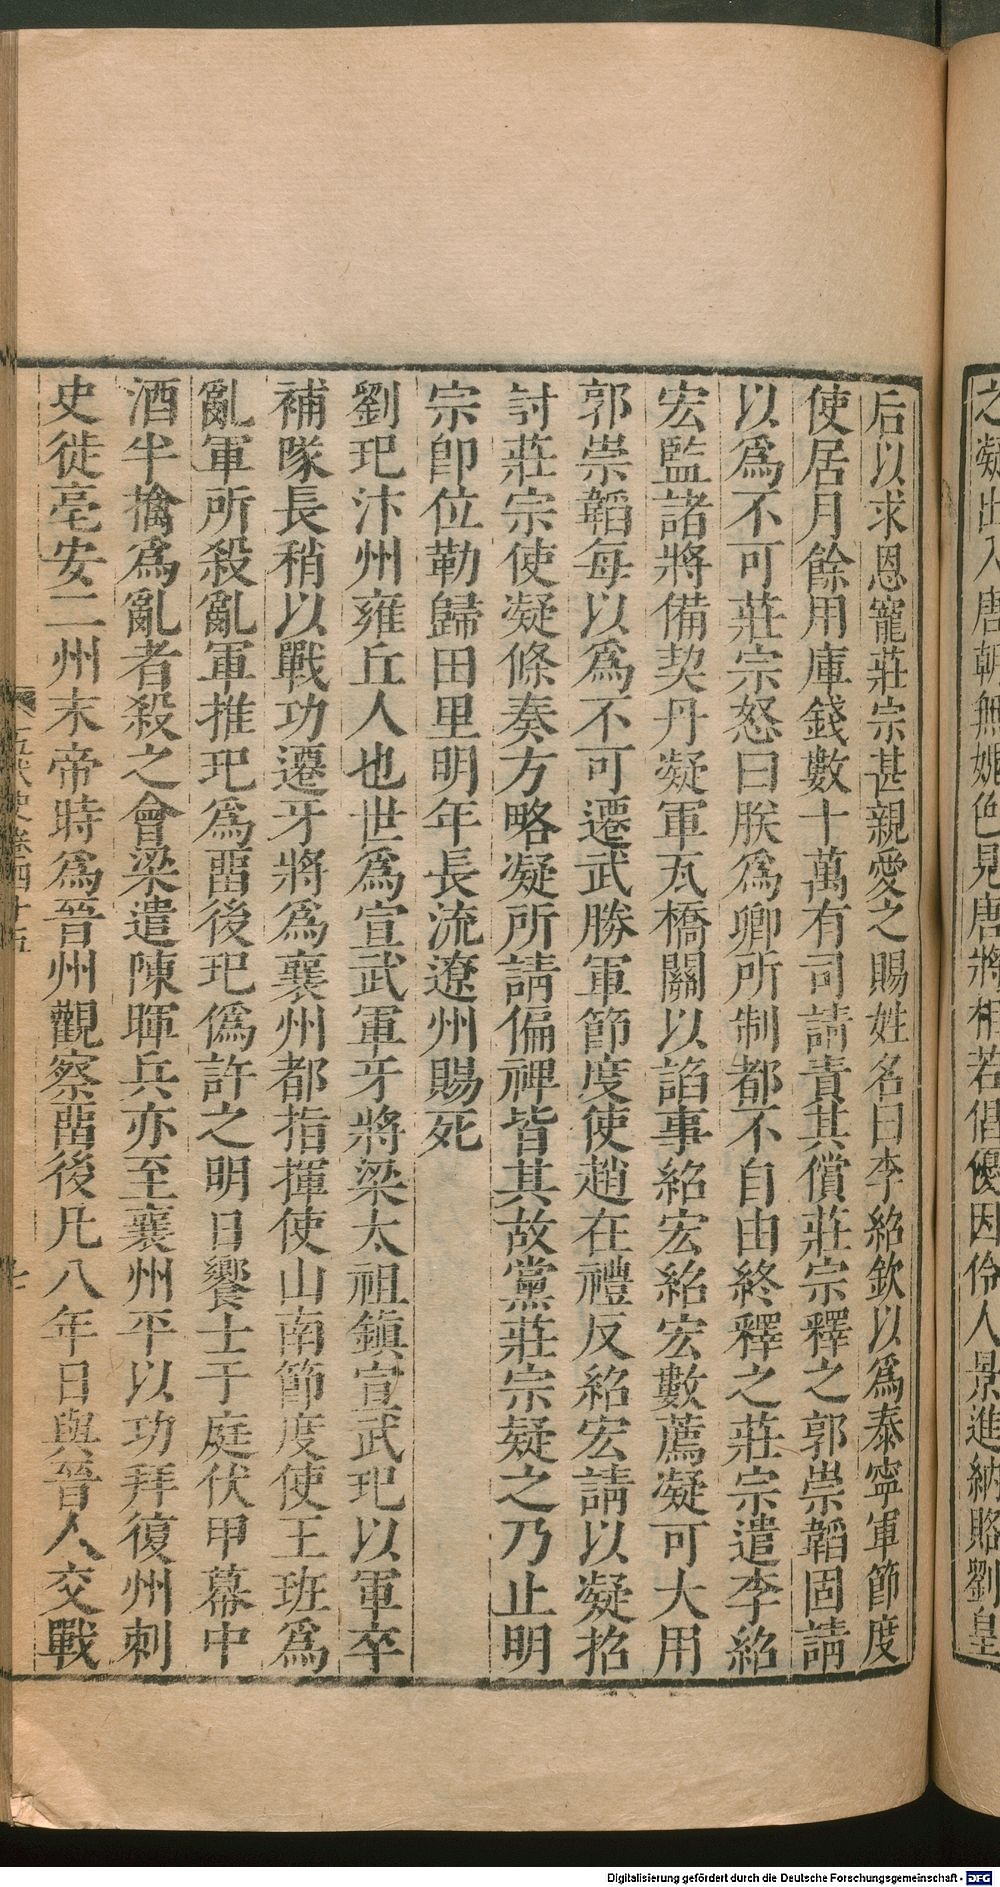 之凝出入唐朝無姚色見唐將相若倡優因伶人景進納賂劉皇
后以求恩寵莊宗甚親愛之賜姓名曰李紹欽以爲泰寧軍節度
使居月餘用庫錢數十萬有司請責其償莊宗釋之郭崇韜固請
以爲不可莊宗怒曰朕爲卿所制都不自由終釋之莊宗遣李紹
宏監諸將備契丹凝軍瓦橋關以諂事紹宏紹宏數薦凝可大用
郭崇韜每以爲不可遷武勝軍節度使趙在禮反紹宏請以凝招
討莊宗使凝條奏方略凝所請偏裨皆其故黨莊宗疑之乃止明
宗卽位勒歸田里明年長流遼州賜死
劉玘汴州雍丘人也世爲宣武軍牙將梁太祖鎭宣武玘以軍卒
補隊長稍以戰功遷牙將爲襄州都指揮使山南節度使王班爲
亂軍所殺亂軍推玘爲畱後玘僞許之明日饗士于庭伏甲幕中
酒半擒爲亂者殺之會梁遣陳暉兵亦至襄州平以功拜復州刺
史徙亳安二州末帝時爲晉州觀察畱後凡八年日與晉人交戰
五代史卷四十五
七
Digitalisierung gefördert durch die Deutsche Forschungsgemeinschaft - DFG